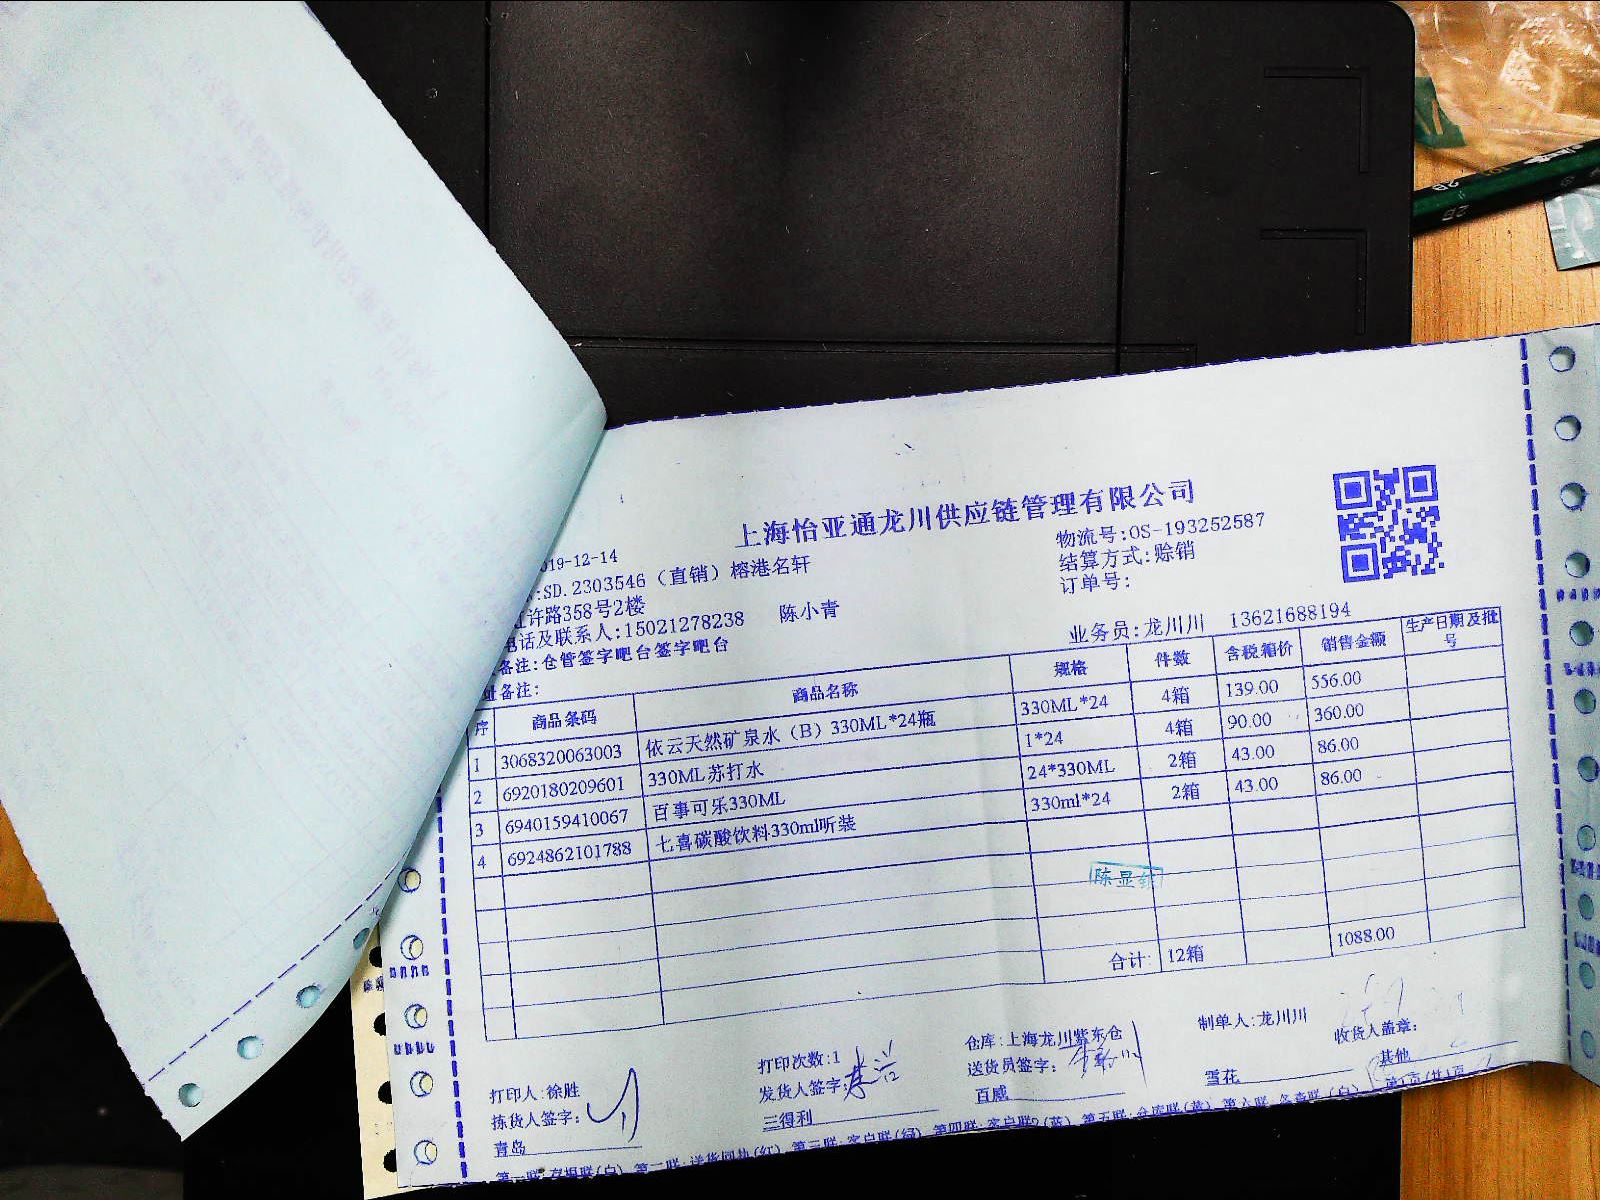 上海怡亚通龙川供应链管理有限公司
19-12-14
物流号:OS-193252587
:SD.2303546（直销）榕港名轩
结算方式:赊销
许路358号2楼
订单号:
电话及联系人:15021278238 陈小青
业务员:龙川川 13621688194
备注:仓管签字吧台签字吧台
备注:
序 商品条码 商品名称 规格 件数 含税箱价 销售金额 生产日期及批号
1 3068320063003 依云天然矿泉水（B）330ML*24瓶 330ML*24 4箱 139.00 556.00
2 6920180209601 330ML苏打水 1*24 4箱 90.00 360.00
3 6940159410067 百事可乐330ML 24*330ML 2箱 43.00 86.00
4 6924862101788 七喜碳酸饮料330ml听装 330ml*24 2箱 43.00 86.00
陈显
合计: 12箱 1088.00
打印人:徐胜 打印次数:1 仓库:上海龙川紫东仓 制单人:龙川川
拣货人签字: 发货人签字: 送货员签字: 收货人盖章:
青岛 三得利 百威 雪花 其他
第1页/共1页
第一联:存根联(白) 第二联:送货回执(红) 第三联:客户联(绿) 第四联:客户联2(蓝) 第五联:仓库联(黄) 第六联:
2B